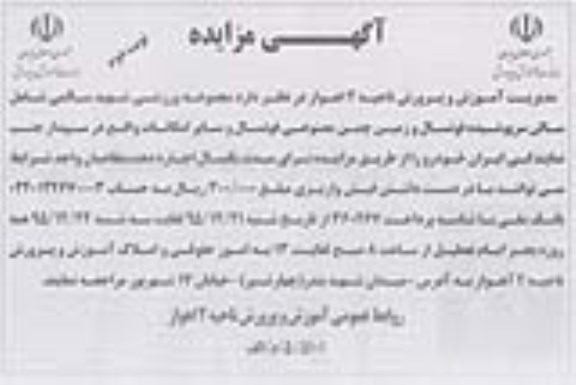 آگهی مزایده
مدیریت آموزش و پرورش ناحیه ۲ اهواز در نظر دارد مجموعه ورزشی شهید سالمی شامل
سالن سرپوشیده فوتسال و زمین چمن مصنوعی فوتسال و سایر امکانات واقع در سپیدار جنب
نمایندگی ایران خودرو را از طریق مزایده برای مدت یکسال اجاره دهد متقاضیان واجد شرایط
می توانند با در دست داشتن فیش واریزی مبلغ ۳۰۰/۰۰۰ ریال به حساب
بانک ملی با شناسه پرداخت از تاریخ شنبه ۹۵/۱۲/۲۱ لغایت سه شنبه ۹۵/۱۲/۲۴ همه
روزه بجز ایام تعطیل از ساعت ۸ صبح لغایت ۱۳ به امور حقوقی و املاک آموزش و پرورش
ناحیه ۲ اهواز به آدرس -میدان شهید بندر (چهارشیر) -خیابان ۱۷ شهریور مراجعه نمایند
روابط عمومی آموزش و پرورش ناحیه ۲ اهواز